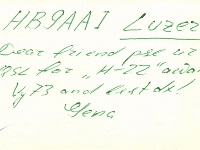 HB9AAI Luzer
Dear friend pse ur
QSL for "H-22" awar
Vy 73 and best dx!
Gena